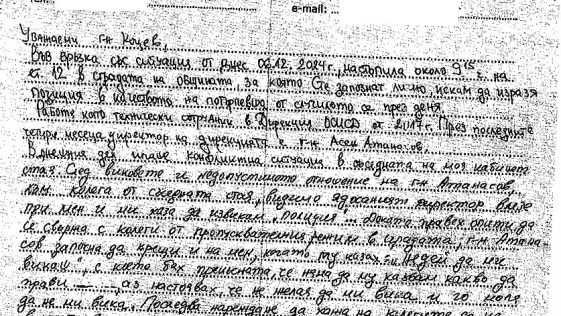 e-mail:
Уважаеми г-н Коцев,
Във връзка със ситуация от днес 06.12.2024г., настъпила около 9 15 ч. на
ет. 12 в сградата на общината, за която Сте запознат лично, искам да изразя
позиция в качеството на потърпевш от случилото се през деня.
Работя като технически сътрудник в Дирекция от 2017г. През последните
четири месеца директор на дирекцията е г-н Асен Атанасов.
В днешния ден стана конфликтна ситуация в съседната на моя кабинет
стая. След виковете и недопустимото отношение на г-н Атанасов,
към колега от съседната стая, видимо ядосаният директор влезе
при мен и ми каза да извикам "полиция". Докато правех опити да
се свържа с колеги от пропускателния режим в сградата, г-н Атана-
сов започна да крещи и на мен, когато му казах "Недей да ми
викаш", с което бях прекъсната, че няма да му казвам какво да
прави аз настоявах, че не желая да ми вика и го моля
да не ми вика. Последва нареждане да кажа на колегите да